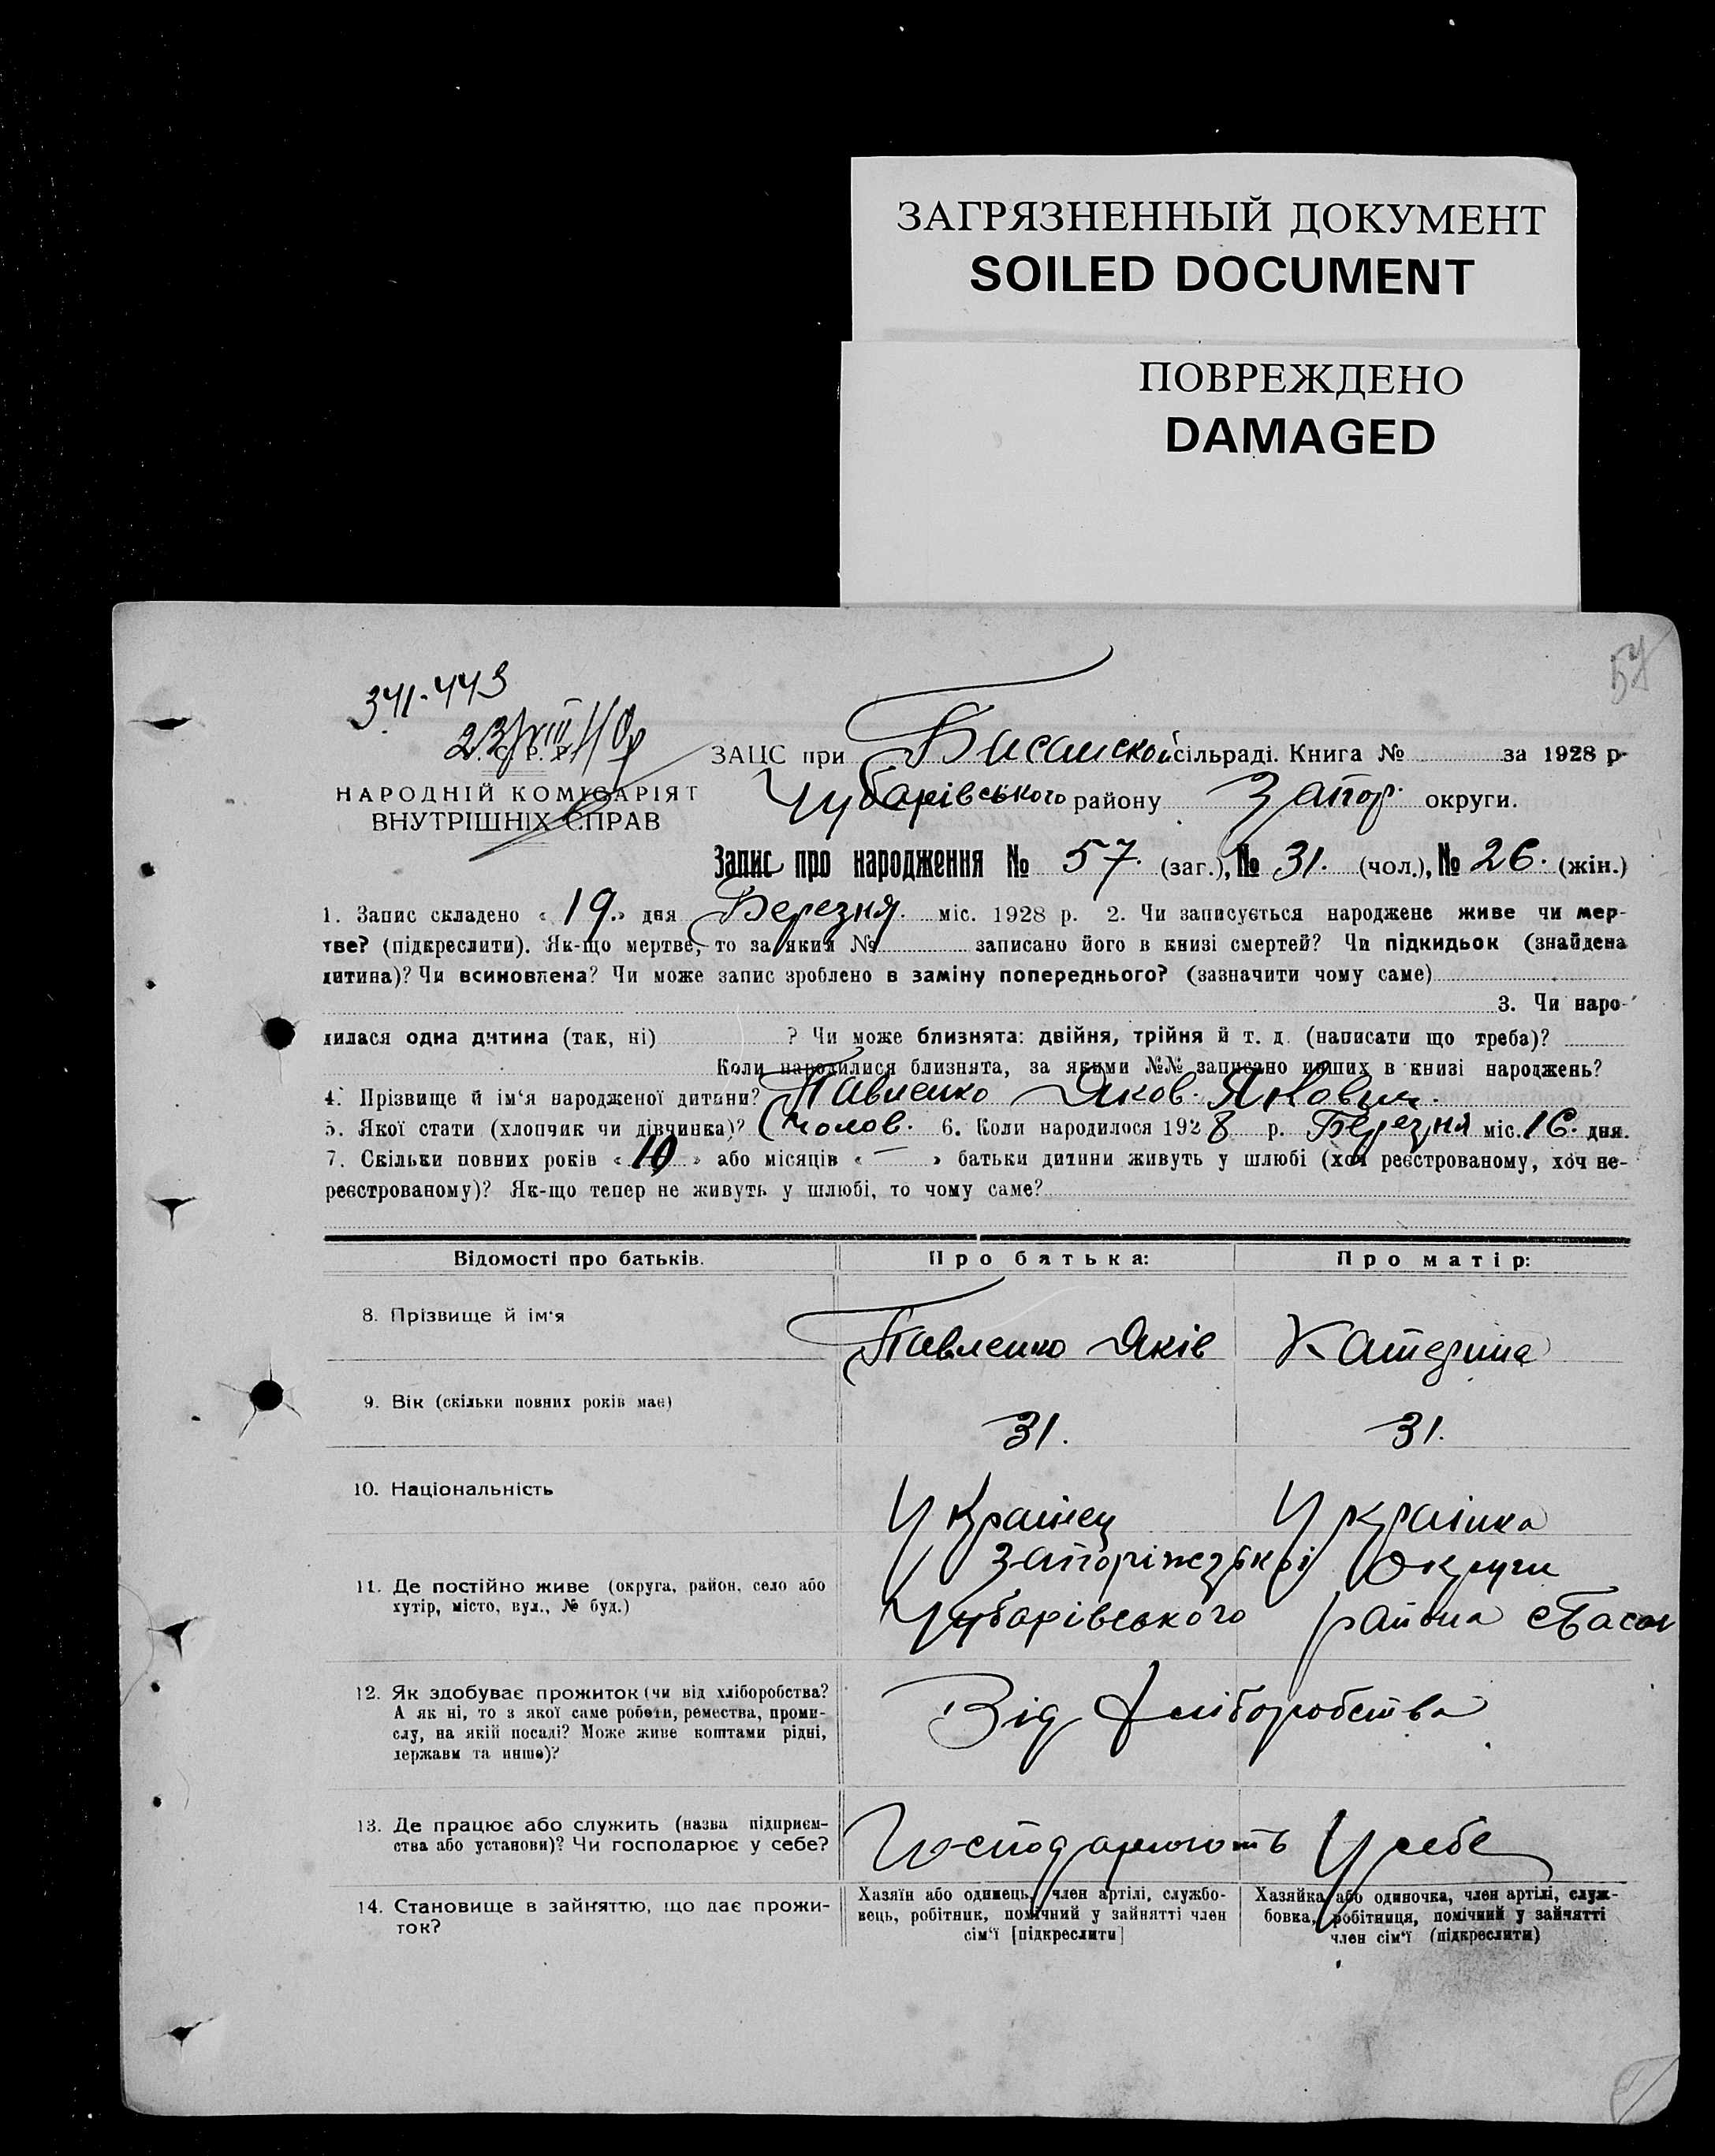 ЗАГРЯЗНЕННЫЙ ДОКУМЕНТ
SOILED DOCUMENT
ПОВРЕЖДЕНО
DAMAGED
57
341-443
23/VIII
У. С. Р. Р.
НАРОДНІЙ КОМІСАРІЯТ
ВНУТРІШНІХ СПРАВ
ЗАЦС при Басанской сільраді. Книга № за 1928 р.
Чубарівського району Запор. округи.
Запис про народження № 57. (заг.), № 31. (чол.), № 26. (жін.)
1. Запис складено «19.» дня Березня. міс. 1928 р. 2. Чи записується народжене живе чи мер-
тве? (підкреслити). Як-що мертве, то за яким № записано його в книзі смертей? Чи підкидьок (знайдена
дитина)? Чи всиновлена? Чи може запис зроблено в заміну попереднього? (зазначити чому саме)
3. Чи наро-
дилася одна дитина (так, ні) ? Чи може близнята: двійня, трійня й т. д. (написати що треба)?
Коли народилися близнята, за якими №№ записано инших в книзі народжень?
4. Прізвище й ім'я народженої дитини? Павленко Яков. Якович.
5. Якої стати (хлопчик чи дівчинка)? Чолов. 6. Коли народилося 1928 р. Березня міс. 16. дня.
7. Скільки повних років «10» або місяців « — » батьки дитини живуть у шлюбі (хоч реєстрованому, хоч не-
реєстрованому)? Як-що тепер не живуть у шлюбі, то чому саме?
Відомості про батьків. Про батька: Про матір:
8. Прізвище й ім'я Павленко Яків Катерина
9. Вік (скільки повних років має) 31. 31.
10. Національність Украінец Украінка
11. Де постійно живе (округа, район, село або
хутір, місто, вул., № буд.)
Запоріжзької Округи
Чубарівського района с Басан
12. Як здобуває прожиток (чи від хліборобства?
А як ні, то з якої саме роботи, ремества, проми-
слу, на якій посаді? Може живе коштами рідні,
держави та инше)?
Від Хліборобства
13. Де працює або служить (назва підприєм-
ства або установи)? Чи господарює у себе?
Господарюють У себе
14. Становище в зайняттю, що дає прожи-
ток?
Хазяїн або одинець, член артілі, службо-
вець, робітник, помічний у зайнятті член
сім'ї [підкреслити]
Хазяйка або одиночка, член артілі, служ-
бовка, робітниця, помічний у зайнятті
член сім'ї (підкреслити)